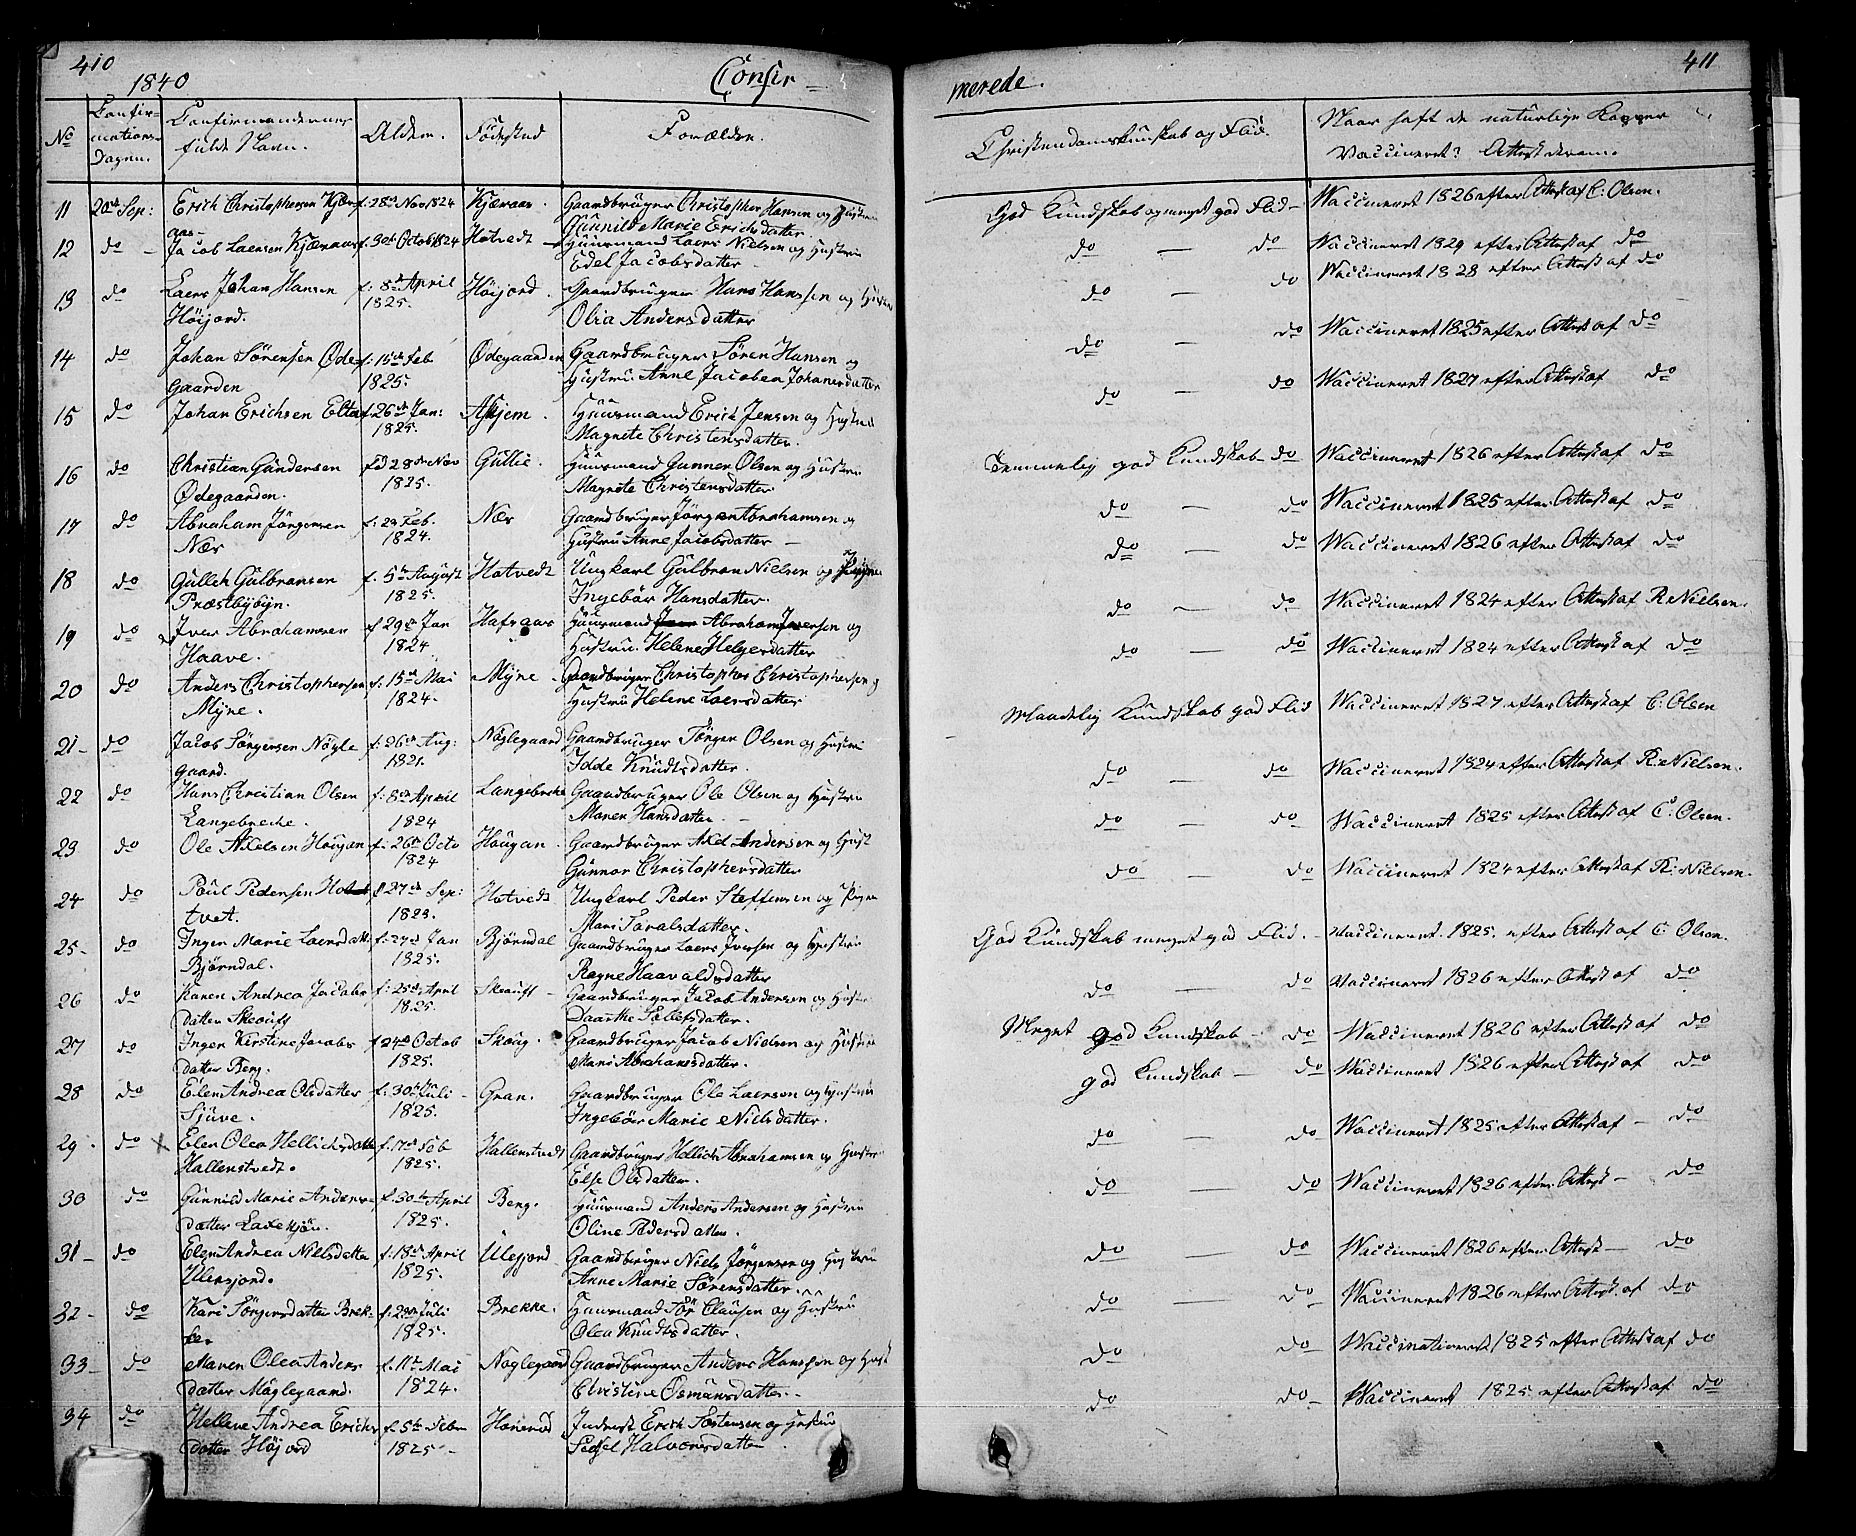 410
1840
Confir-
merede.
411
No
Confir-
mations-
Dagen.
Confirmandernes
fulde Navn.
Alder.
Fødested
Forældre.
Christendomskundskab og Flid.
Naar haft de naturlige Kopper
Vaccineret? Attest derom.
11 20de Sep: Erich Christophersen Kjær f. 28de Nov 1824 Kjæraas. Gaardbruger Christopher Hansen og Hustru God Kundskab og meget god Flid - Vaccineret 1826 efter Attest af C: Olsen.
aas- Gunnild Marie Erichsdatter
12 do - Jacob Laersen Kjæraas f. 30te Octob 1824 Hotvedt Huusmand Laers Nielsen og Hustru do - do Vaccineret 1829 efter Attest af do
Edel Jacobsdatter -
13 do Laers Johan Hansen f: 8de April Høijord. Gaardbruger Hans Hanssen og Hustru do - do Vaccineret 1828 efter Attest af do
Høijord. 1825. Olia Andersdatter
14 do Johan Sörensen Øde f: 15de Feb Ødegaarden Gaardbruger Sören Hansen og do - do Vaccineret 1825 efter Attest af do
Gaarden 1825. Hustru Anne Jacobea Johanesdatter
15 do Johan Erichsen f. 26de Jan: Askjem. Huusmand Erich Jensen og Hustru do - do Vaccineret 1827 efter Attest af do
1825. Magnete Christensdatter.
16 do Christian Gundersen 28de Nov Gullie. Huusmand Gunner Olsen og Hustru Temmelig god Kundskab - do Vaccineret 1826 efter Attest af do
Ødegaarden. 1825. Magnete Christensdatter
17 do Abraham Jörgensen f: Feb. Nær Gaardbruger Jörgen Abrahamsen og do - do Vaccineret 1825 efter Attest af do
Nær 1824. Hustru Anne Jacobsdatter -
18 do Gullich Gulbransen f. 5te August Hotvedt Ungkarl Gulbran Nielsen og Pigen do - do Vaccineret 1826 efter Attest af do
Præstbybyn. 1825. Ingebör Hansdatter.
19 do Iver Abrahamsen f 29de Jan Hafsaas Huusmand Abraham Iversen og do - do Vaccineret 1824 efter Attest af R: Nielsen.
Haave. 1824 Hustru. Helene Helgesdatter
20 do Anders Christophersen f. 15de Mai Myne Gaardbruger Christopher Christophersen og do - do Vaccineret 1824 efter Attest af do
Myne. 1824. Hustru Helene Laersdatter
21- do Jacob Jörgensen Nögle f: 26de Aug: Nöglegaard Gaardbruger Jörgen Olsen og Hustru Maadelig Kundskab god Flid Vaccineret 1827 efter Attest af C: Olsen
gaard. Idde Knudtsdatter.
22 do Hans Christian Olsen f. 8de April Langebreke Gaardbruger Ole Olsen og Hustru do - do Vaccineret 1824 efter Attest af R: Nielsen.
Langebreke. 1824 Maren Hansdatter -
23 do Ole Axelsen Hougan f: 26de Octo Hougan. Gaardbruger Axel Andersen og Hust do - do Vaccineret 1825 efter Attest af C: Olsen.
1824 Gunnor Christophersdatter
24 do Poul Pedersen Hot f 27de Sep: Hotvedt Ungkarl Peder Steffensen og Pigen do - do Vaccineret 1824 efter Attest af R: Nielsen.
tvet. 1823. Mari Taralsdatter.
25- do Inger Marie Laersdatter f: Jan Björndal Gaardbruger Laers Iversen og Hustru God Kundskab meget god Flid. - Vaccineret. 1825. efter Attest af C: Olsen.
Björndal. 1825. Ragne Haavaldsdatter
26 do Karen Andrea Jacobs f: 25de April Skouft Gaardbruger Jacob Andersen og Hustru do - do Vaccineret 1826 efter Attest af do
datter Skouft 1825. Daarthe Sollefsdatter.
27 do Inger Kirstine Jacobs f 24de Octob Skoug. Gaardbruger Jacob Nielsen og Hustru Meget god Kundskab - do Vaccineret 1826 efter Attest af do
datter Berg. 1825. Mari Abrahamsdatter.
28 do Elen Andrea Olsdatter f: 30te Juli Gran. Gaardbruger Ole Laersen og Hustru god Kundskab - do Vaccineret 1826 efter Attest af do
Sjüve. 1825. Ingebör Marie Nielsdatter.
29. do X Elen Olea Hellichsdatter f. 17de Feb Hallenstvedt Gaardbruger Hellich Abrahamsen og Hustru do - do Vaccineret 1825 efter Attest af - do
Hallenstvedt. 1825. Else Olsdatter.
30 do Gunnild Marie Anders- f. 30te April Berg. Huusmand Anders Andersen og Hustru do - do Vaccineret 1826 efter Attest - do
datter 1825. Oline Pedersdatter.
31- do Elen Andrea Nielsdatter f: 18de April Ulefjord Gaardbruger Niels Jörgensen og Hustru do - do Vaccineret 1826 efter Attest - do
1825. Anne Marie Sörensdatter.
32- do Kari Jörgensdatter Brek- f: Juli Brekke. Huusmand Clausen og Hustru do - do Vaccineret 1826 efter Attest af do
ke. 1825. Olea Knudtsdatter.
33- do Maren Olea Anders f. 11te Mai Nöglegaard Gaardbruger Anders Hanssen og Hust do - do Vaccinationeret 1825 efter Attest af do
datter Nöglegaard. 1824. Christine Osmunsdatter.-
34 do Hellene Andrea Erichs f. 5te Feb Inderst Erich og Hustru do - do Vaccineret 1825. efter Attest af do
datter Höjord 1825 - Sidsel Halvorsdatter